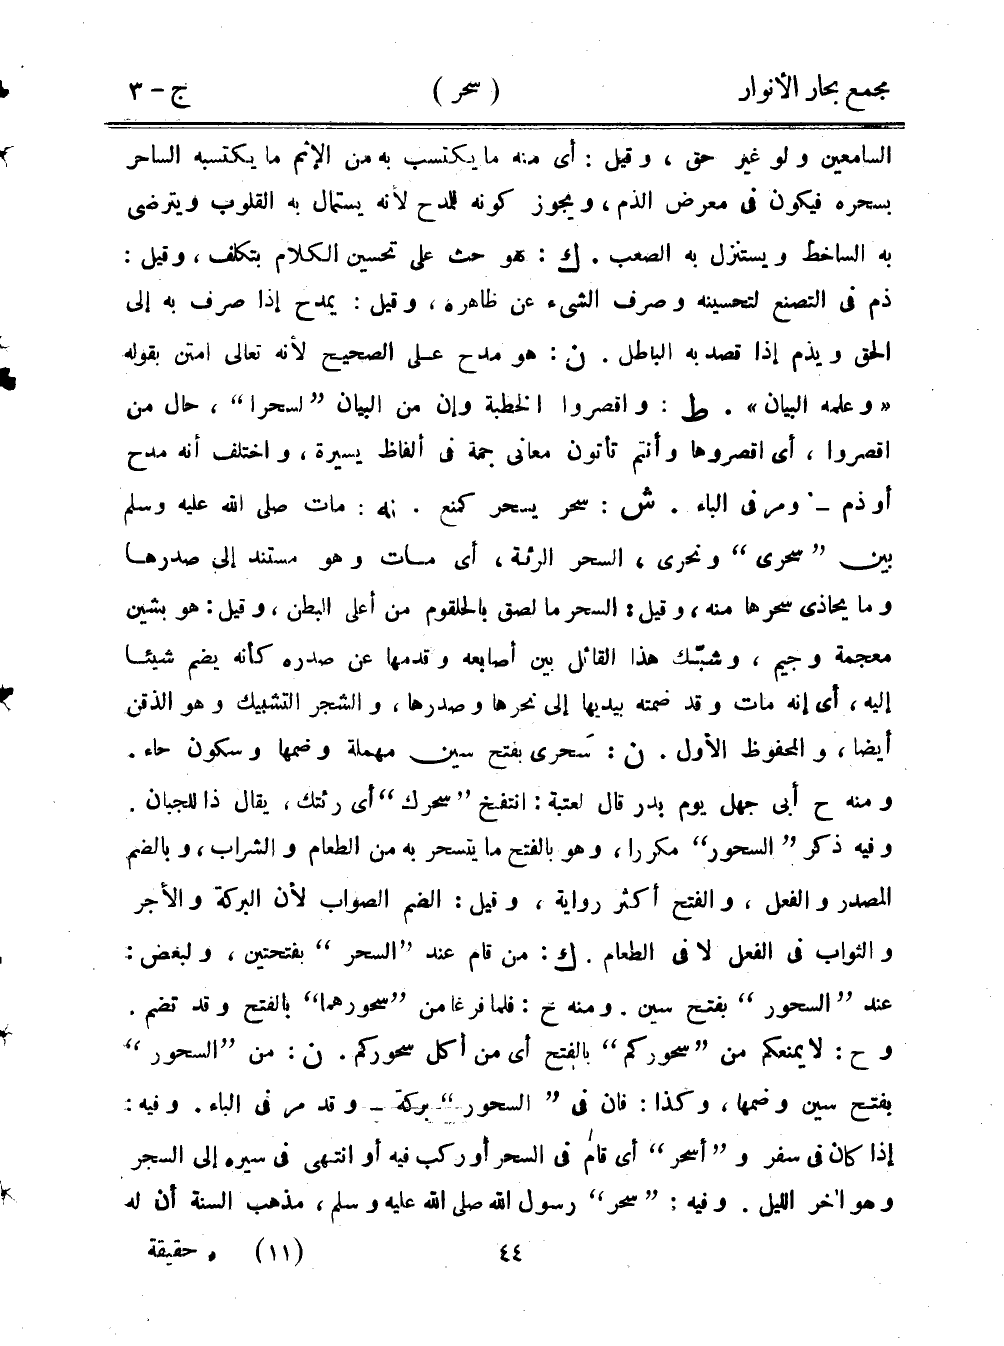 مجمع بحار الأنوار ( سحر ) ج - ٣
السامعين و لو غير حق ، و قيل : أى منه ما يكتسب به من الإثم ما يكتسبه الساحر
بسحره فيكون فى معرض الذم ، و يجوز كونه للمدح لأنه يستمال به القلوب ويترضى
به الساخط و يستنزل به الصعب . ك : هو حث على تحسين الكلام بتكلف ، و قيل :
ذم فى التصنع لتحسينه و صرف الشىء عن ظاهره ، و قيل : يمدح إذا صرف به إلى
الحق و يذم إذا قصد به الباطل . ن : هو مدح على الصحيح لأنه تعالى امتن بقوله
« و علمه البيان » . ط : و اقصروا الخطبة وإن من البيان ”لسحرا“ ، حال من
اقصروا ، أى اقصروها و أنتم تأتون معانى جمة فى ألفاظ يسيرة ، و اختلف أنه مدح
أو ذم - ومر فى الباء . ش : سحر يسحر كمنع . نه : مات صلى الله عليه وسلم
بين ”سحرى“ و نحرى ، السحر الرئة ، أى مات و هو مستند إلى صدرها
و ما يحاذى سحرها منه ، و قيل : السحر ما لصق بالحلقوم من أعلى البطن ، و قيل : هو بشين
معجمة و جيم ، و شبّك هذا القائل بين أصابعه و قدمها عن صدره كأنه يضم شيئا
إليه ، أى إنه مات و قد ضمته بيديها إلى نحرها و صدرها ، و الشجر التشبيك و هو الذقن
أيضا ، و المحفوظ الأول . ن : سَحرى بفتح سين مهملة و ضمها و سكون حاء .
و منه ح أبى جهل يوم بدر قال لعتبة : انتفخ ”سحرك“ أى رئتك ، يقال ذا للجبان .
و فيه ذكر ”السحور“ مكررا ، و هو بالفتح ما يتسحر به من الطعام و الشراب ، و بالضم
المصدر و الفعل ، و الفتح أكثر رواية ، و قيل : الضم الصواب لأن البركة و الأجر
و الثواب فى الفعل لا فى الطعام . ك : من قام عند ”السحر“ بفتحتين ، و لبعض :
عند ”السحور“ بفتح سين . و منه ح : فلما فرغا من ”سحورهما“ بالفتح و قد تضم .
و ح : لا يمنعكم من ”سحوركم“ بالفتح أى من أكل سحوركم . ن : من ”السحور“
بفتح سين و ضمها ، و كذا : فان فى ”السحور“ بركة - و قد مر فى الباء . و فيه :
إذا كان فى سفر و ”أسحر“ أى قام فى السحر أو ركب فيه أو انتهى فى سيره إلى السحر
و هو آخر الليل . و فيه : ”سحر“ رسول الله صلى الله عليه و سلم ، مذهب السنة أن له
٤٤ (١١) حقيقة و